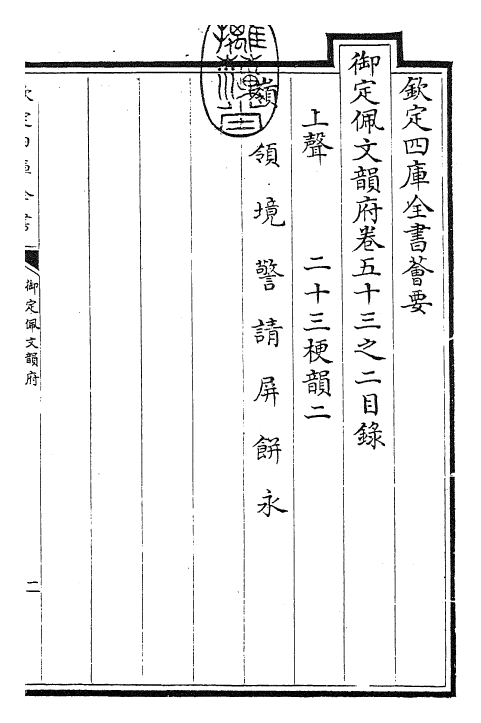 欽定四庫全書薈要
御定佩文韻府卷五十三之二目錄
上聲 二十三梗韻二
嶺領境警請屏餅永
御定佩文韻府
二